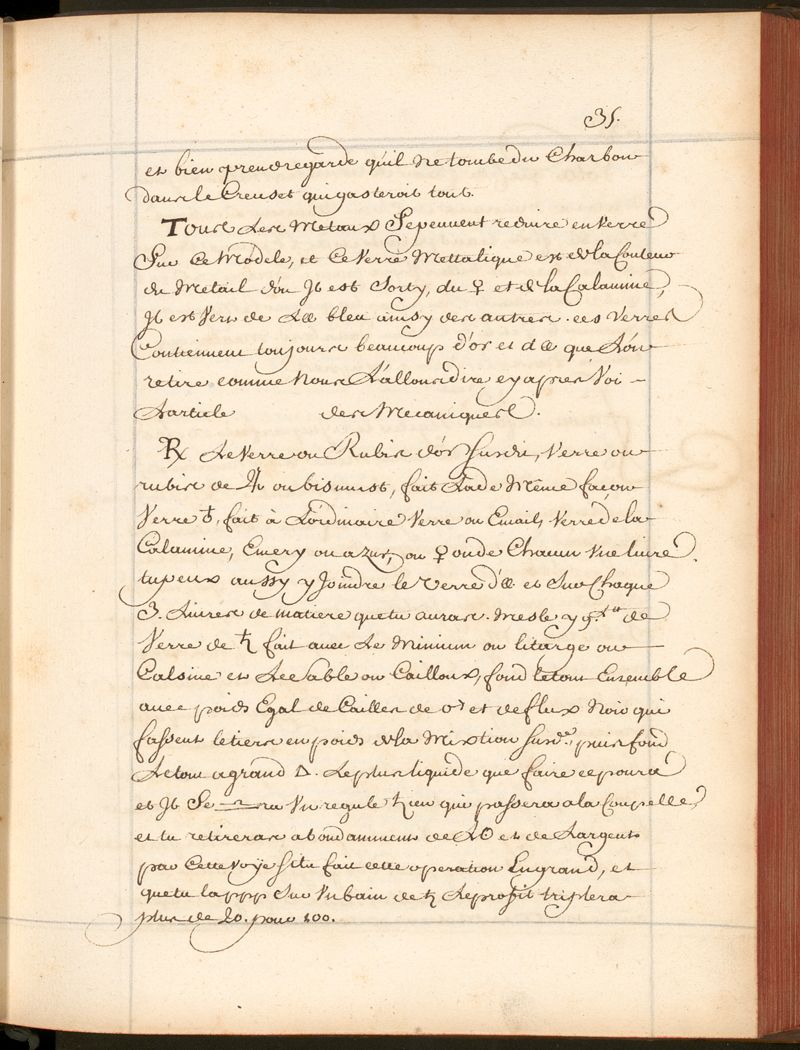 35.
et bien prendre garde quil ne tombe du Charbon
dans le Creuset qui gasteroit tout.
Tous les Metaux Se peuvent reduire en Verre
Sur Ce Modele, et Ce Verre Mettalique est de la Couleur
du Metail d'ou Jl est Sorty, du ♀ et de la Calamine,
Jl est Vert de bleu ainsy des autres. ces Verres
Contiennent toujours beaucoup d'or et d que L'on
retire comme Nous L'allons dire cy apres Voi -
L'article des Mecaniques.
℞ Le Verre ou Rubis d'or Susdit, Verre ou
rubis de ♃ ou bismust, fait La de Même façon
Verre ♁, fait à L'ordinaire Verre ou Email, Verre de la
Calamine, Emery ou azur, ou ♀ onde Chacun Une livre.
tu peux aussy y Joindre le Verre d et Sur Chaque
3. Livres de matiere que tu auras. Mesle y de
Verre de ♄ fait avec Le Minium ou litarge ou
Calsine et Le Sable ou Cailloux, fond le tout Ensemble
avec poids Egal de Cailles de et de flux Noir qui
fassent le tiers en poids de la Mixtion Susde. puis fond
Le tout a grand △. Le plus liquide que faire ce poura
et Jl Se ra Un regule ♄ien qui passera a la Coupelle,
et tu retireras abondamment de L'O et de L'argent
par Cette Voÿe Si tu fait cette operation En grand, et
que tu la ppp Sur Un bain de ♄ Le profit triplera
plus de 20. pour 100.